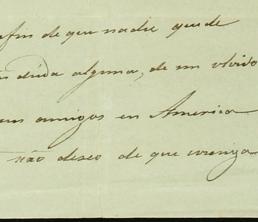 afin de que nadie quede
duda alguna, de un olvido
amigos en America
não deseo de que venga